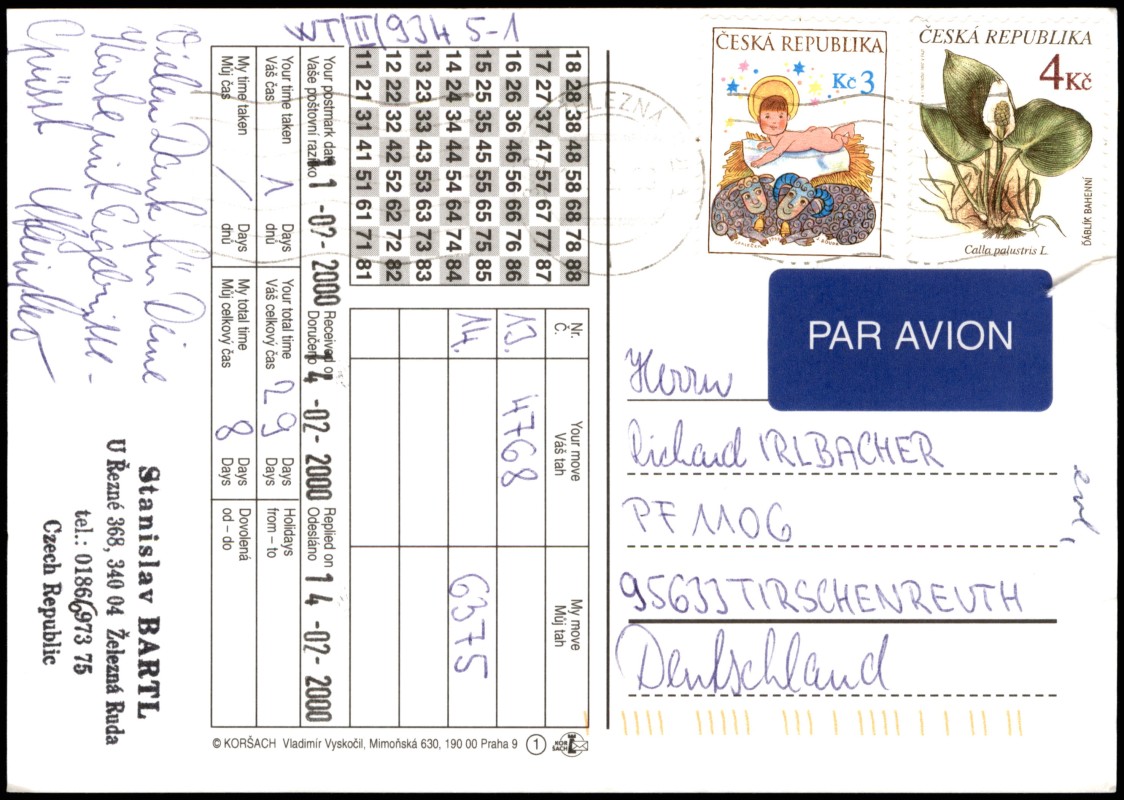 WT/II/934 5-1
ČESKÁ REPUBLIKA
Kč 3
ČESKÁ REPUBLIKA
4 Kč
ĎÁBLÍK BAHENNÍ
Calla palustris L.
ŽELEZNÁ
PAR AVION
Herrn
Richard IRLBACHER
PF 1106
95633 TIRSCHENREUTH
Deutschland
18 28 38 48 58 68 78 88
17 27 37 47 57 67 77 87
16 26 36 46 56 66 76 86
15 25 35 45 55 65 75 85
14 24 34 44 54 64 74 84
13 23 33 43 53 63 73 83
12 22 32 42 52 62 72 82
11 21 31 41 51 61 71 81
Nr. Your move My move
Č. Váš tah Můj tah
13. 4768
14. 6375
Your postmark date Received on Replied on
Vaše poštovní razítko Doručeno Odesláno
11-02-2000 14-02-2000 14-02-2000
Your time taken Days Your total time Days Holidays
Váš čas 1 dnů Váš celkový čas 29 Days from – to
My time taken Days My total time Days Dovolená
Můj čas / dnů Můj celkový čas 8 Days od – do
Vielen Dank für Deine
Grüsst
Stanislav BARTL
U Řezné 368, 340 04 Železná Ruda
tel.: 0186/6973 75
Czech Republic
© KORŠACH Vladimír Vyskočil, Mimoňská 630, 190 00 Praha 9 1
KOR
ŠACH